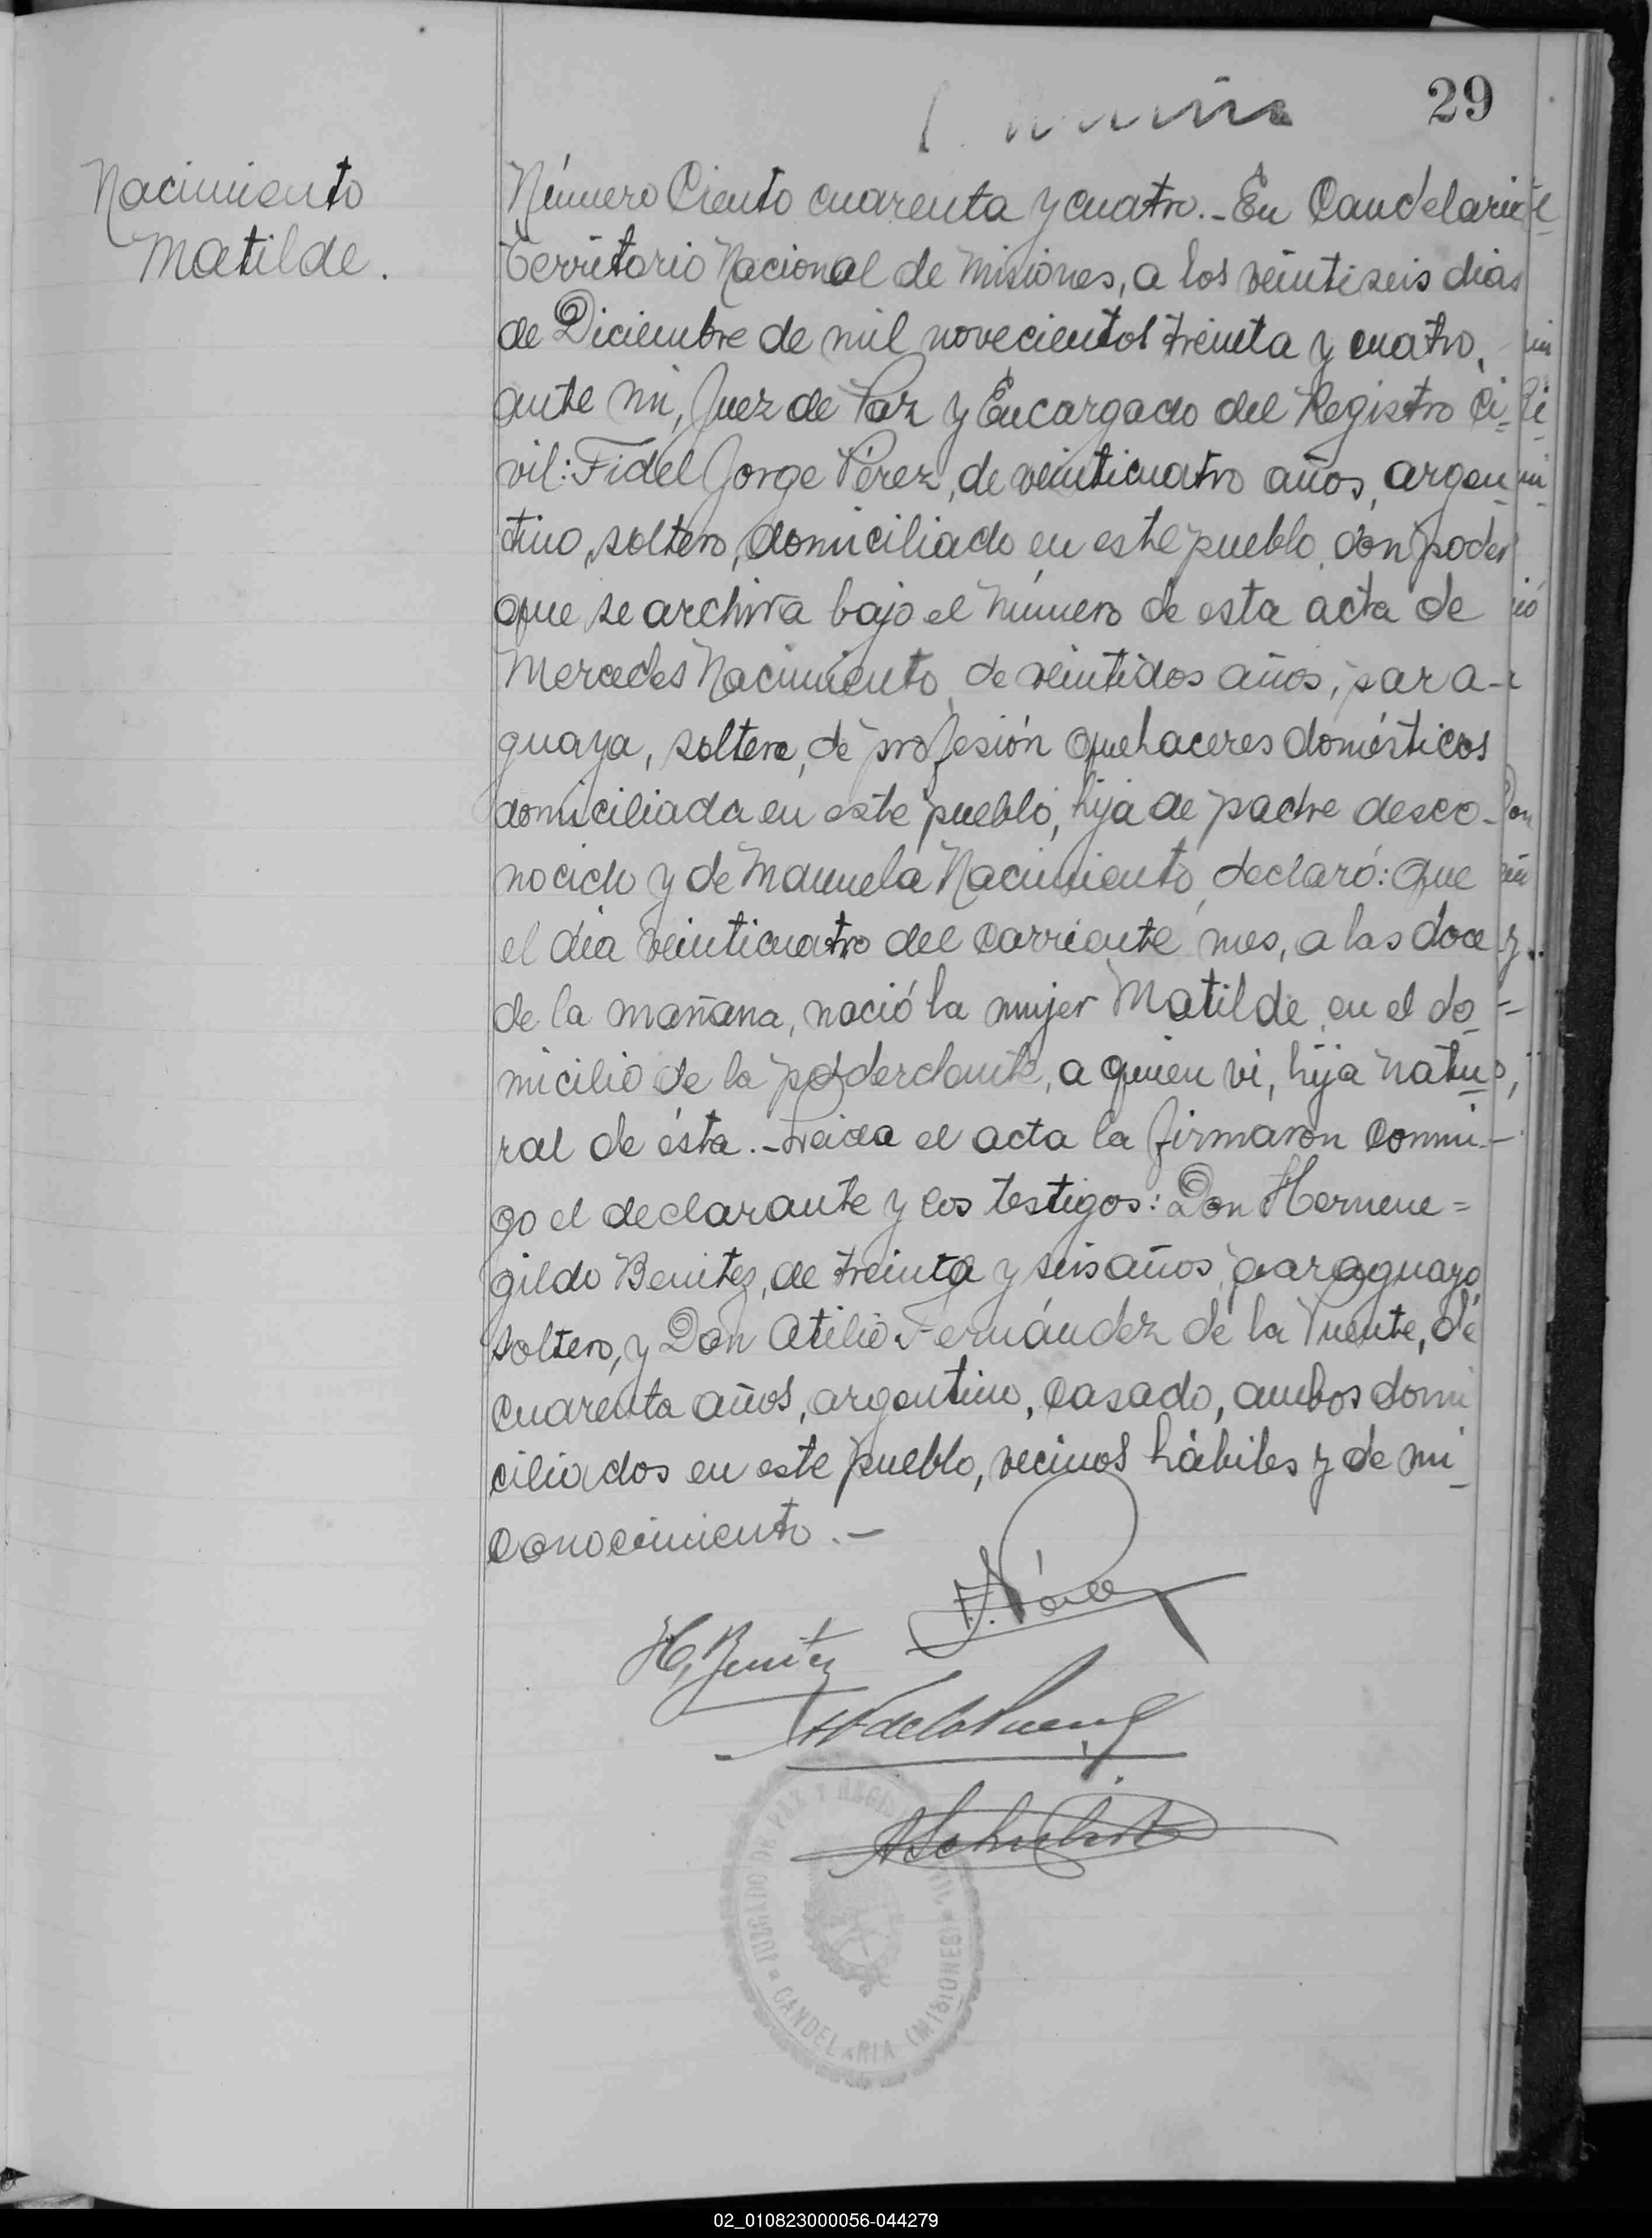 29
Nacimiento
Matilde.
Número Ciento cuarenta y cuatro.- En Candelaria
Territorio Nacional de Misiones, a los veintiseis dias
de Diciembre de mil novecientos treinta y cuatro,
ante mi, Juez de Paz y Encargado del Registro Ci-
vil: Fidel Jorge Pérez, de veinticuatro años, argen-
tino, soltero, domiciliado en este pueblo, con poder
que se archiva bajo el número de esta acta de
Mercedes Nacimiento, de veintidos años, para-
guaya, soltera, de profesión quehaceres domésticos
domiciliada en este pueblo, hija de padre desco-
nocido y de Manuela Nacimiento, declaró: Que
el dia veinticuatro del corriente mes, a las doce
de la mañana, nació la mujer Matilde, en el do-
micilio de la poderdante, a quien vi, hija natu-
ral de ésta.- Leida el acta la firmaron conmi-
go el declarante y los testigos: Don Hermene=
gildo Benitez, de treinta y seis años, paraguayo,
soltero, y Don Atilio Fernández de la Puente, de
cuarenta años, argentino, casado, ambos domi
ciliados en este pueblo, vecinos hábiles y de mi
conocimiento.-
F. J. Pérez
H. Benitez
JUZGADO DE PAZ Y REGISTRO CIVIL
CANDELARIA (MISIONES)
02_010823000056-044279